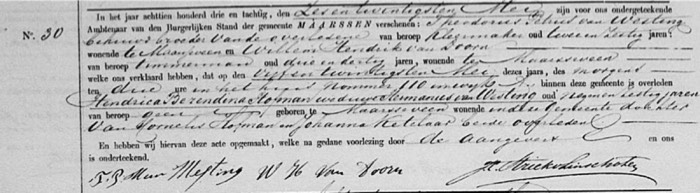 N°. 30
In het jaar achttien honderd drie en tachtig, den Zesentwintigsten Mei zijn voor ons ondergeteekende
Ambtenaar van den Burgerlijken Stand der gemeente MAARSSEN verschenen: Theodorus Petrus van Westing
behuwd broeder van de overledene van beroep Kleermaker oud twee en zestig jaren
wonende te Maarsseveen en Willem Hendrik van Doorn
van beroep Timmerman oud drie en dertig jaren, wonende te Maarsseveen
welke ons verklaard hebben, dat op den Vijfentwintigsten Mei dezes jaars, des morgens
ten drie ure in het huis Nommer 110 binnen deze gemeente is overleden
Hendrica Berendina Hofman weduwe Hermanus van Westing oud zestig jaren
van beroep geen geboren te Maarsseveen wonende in deze Gemeente dochter
van Cornelis Hofman en Johanna Ketelaar beide overleden
En hebben wij hiervan deze acte opgemaakt, welke na gedane voorlezing door de aangevers en ons
is onderteekend.
T. P. van Westing W H van Doorn